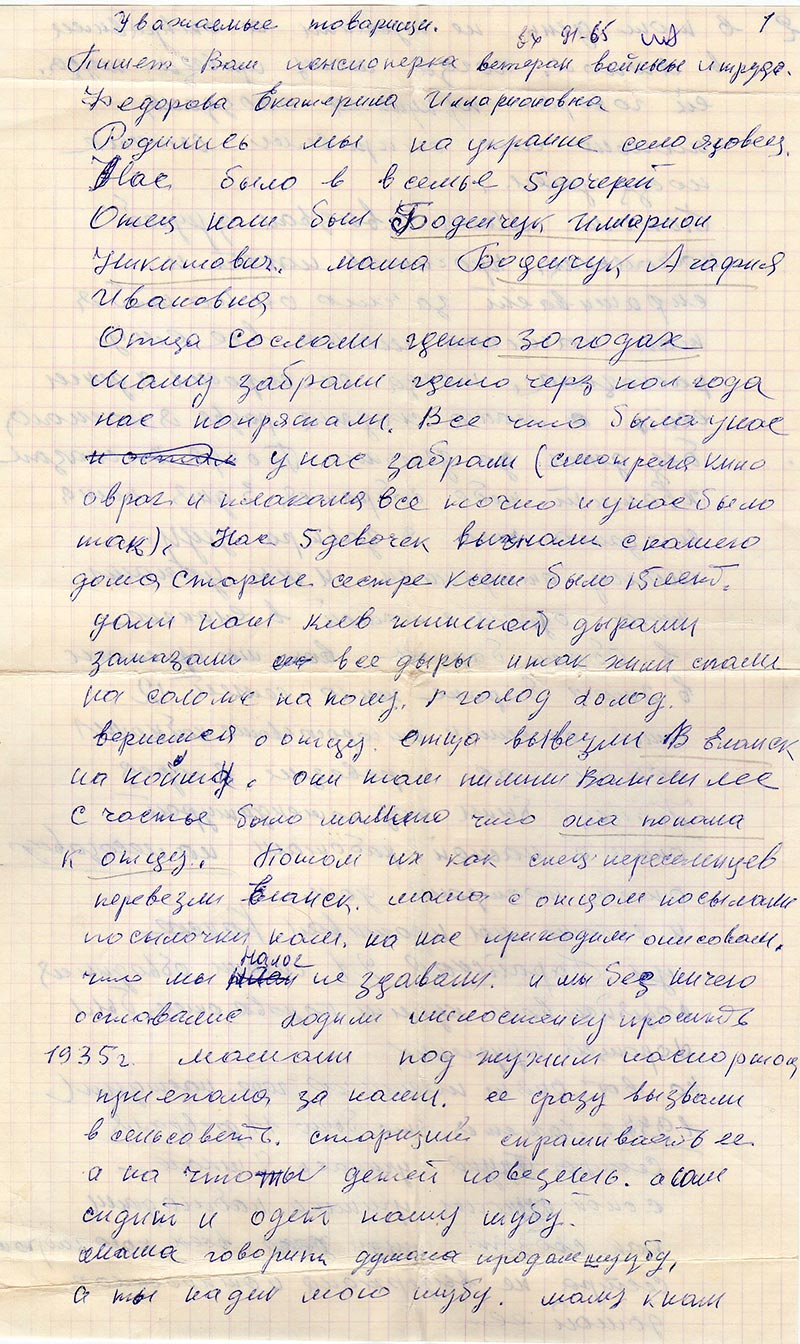 Уважаемые товарищи.
1
вх 91-65
Пишет Вам пенсионерка ветеран войны и труда.
Федорова Екатерина Илларионовна
Родились мы на украине село язовец.
Нас было в в семье 5 дочерей
Отец наш был Боденчук Илларион
Никитович. мама Боденчук Агафия
Ивановна
Отца сослали гдето 30 годах
Маму забрали гдето черз пол года
нас попрятали. Все что была унас
и остал у нас забрали (смотрела кино
овраг и плакала все точно и унас было
так). Нас 5 девочек выгнали с нашего
дома Старше сестре Ксени было 15 лет.
дали нам хлев глиной дырами
замазали все дыры итак жили спали
на соломе на полу. голод холод.
вернемся о отцу. отца вывезли В Еланск
на койму. они там пилили Валили лес
Счастье было мамыно что она попала
к отцу. Потом их как спец переселенцев
перевезли Еланск. мама с отцом посылали
посылочки нам. на нас приходили описовали.
что мы налог не здавали. и мы без ничего
оставались ходили милостенку просить
1935 г. мамаша под чужим паспортом
приехала за нами. ее сразу вызвали
в сельсоветъ. старший спрашиваетъ ее
а на что ты детей повезешь. а сам
сидит и одет нашу шубу.
мама говорит думала продам шубу,
а ты надел мою шубу. маму к нам